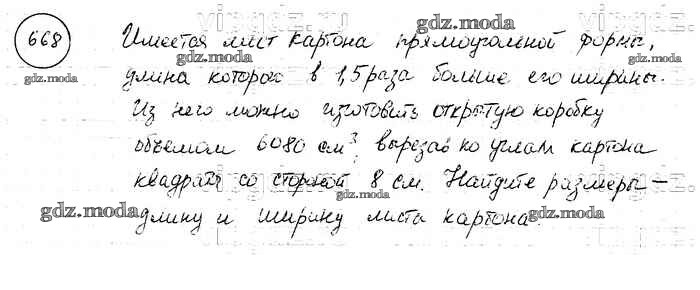 668
Имеется лист картона прямоугольной формы,
длина которого в 1,5 раза больше его ширины.
Из него можно изготовить открытую коробку
объемом 6080 см³, вырезав по углам картона
квадраты со стороной 8 см. Найдите размеры —
длину и ширину листа картона.
gdz.moda
gdz.moda
gdz.moda
gdz.moda
gdz.moda
gdz.moda
gdz.moda
gdz.moda